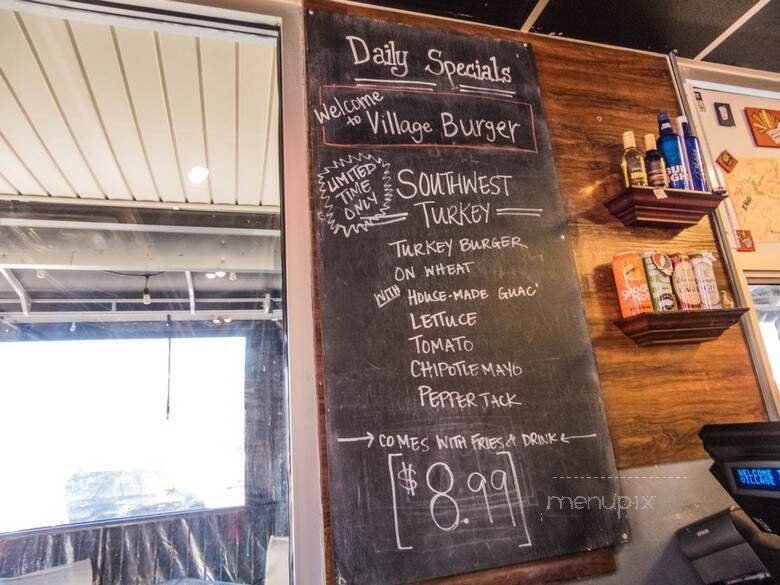 Daily Specials
Welcome
to
Village Burger
LIMITED
TIME
ONLY
SOUTHWEST
TURKEY
TURKEY BURGER
ON WHEAT
WITH HOUSE-MADE GUAC'
LETTUCE
TOMATO
CHIPOTLE MAYO
PEPPER JACK
COMES WITH FRIES & DRINK
$8.99
menupix
BUD
LIGHT
WELCOME T
VILLAGE